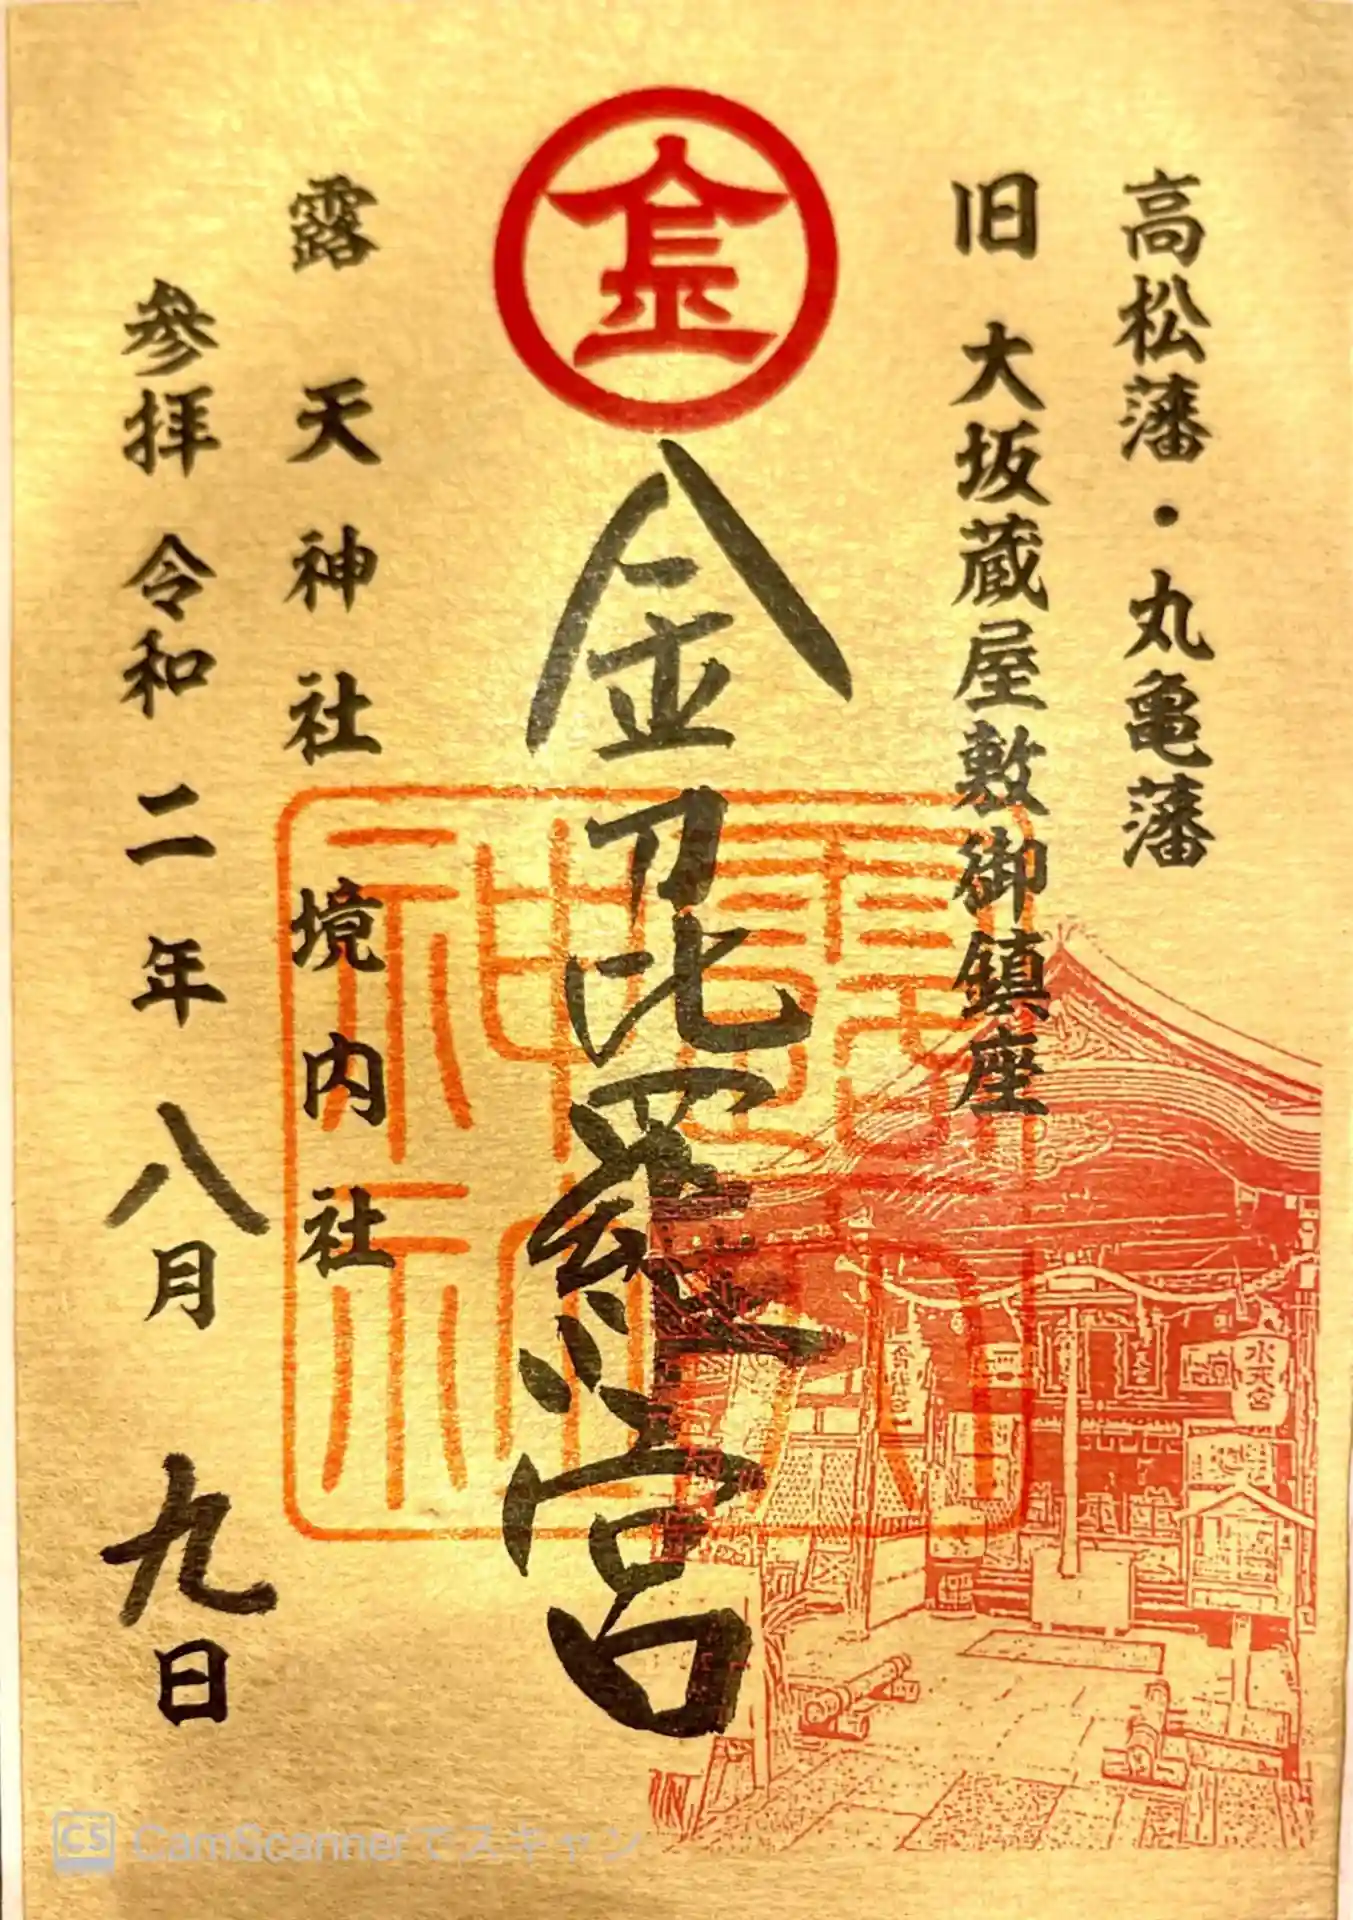 高松藩・丸亀藩
旧 大坂蔵屋敷御鎮座
金
金毘羅宮
露天神社 境内社
参拝 令和二年八月九日
水天宮
CS CamScannerでスキャン